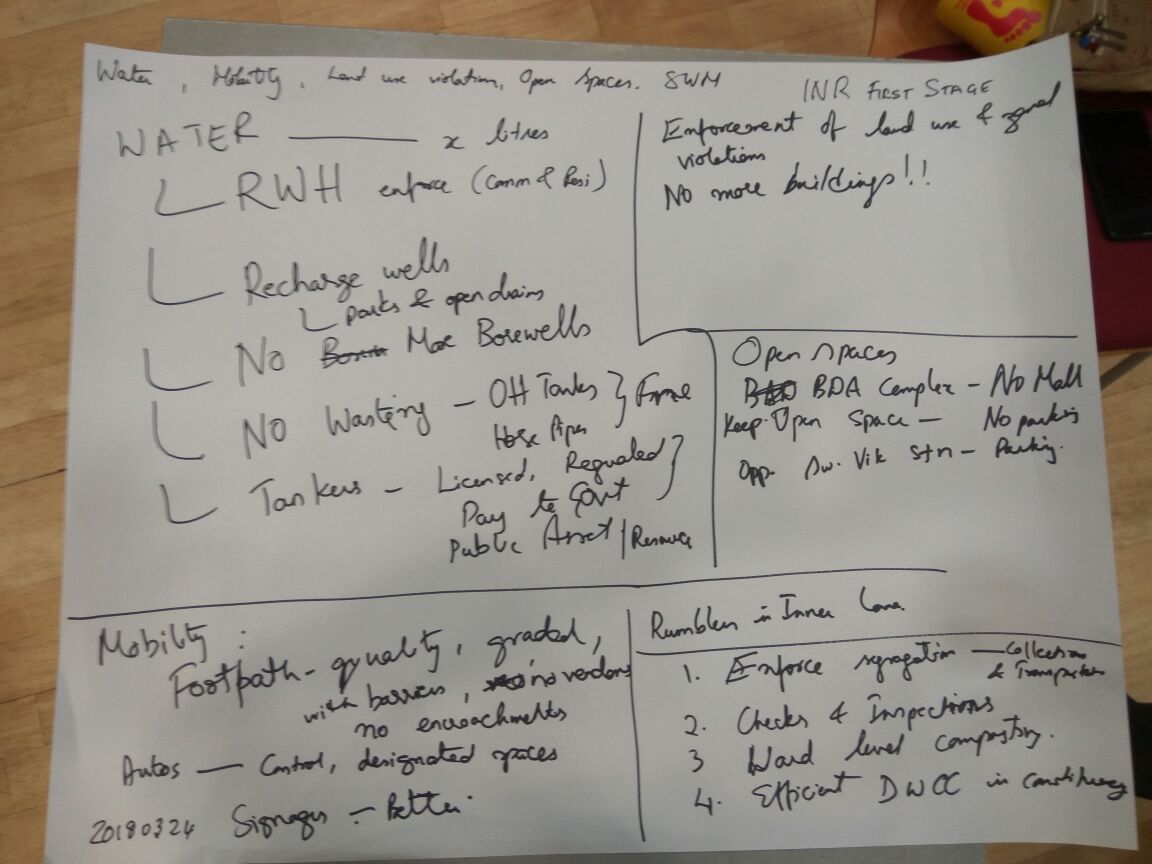 Water, Mobility, Land use violation, Open Spaces. SWM
INR FIRST STAGE
WATER — x litres
RWH enforce (Comm & Resi)
Recharge wells
parks & open drains
No More Borewells
No Wasting – OH Tanks
Hose Pipes
Tankers – Licensed, Regualed
Pay to Govt
Public Asset / Resource
Enforcement of land use &
violations
No more buildings!!
Open spaces
BDA Complex – No Mall
Keep Open Space – No parking
Opp. Sw. Vik Stn – Parking.
Mobility :
Footpath – quality, graded,
with barriers, no vendors
no encroachments
Autos — Control, designated spaces
Signages – Better
20180324
Rumblers in Inner Lane.
1. Enforce segregation — Collection
& Transportation
2. Checks & Inspections
3 Ward level composting.
4. Efficient DWCC in constituency